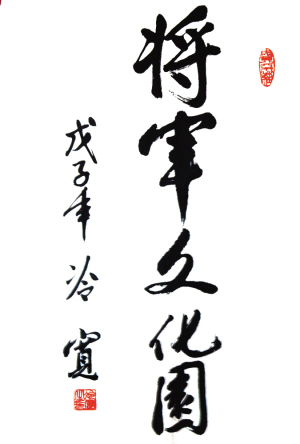 将军文化园
戊子年 冷宽